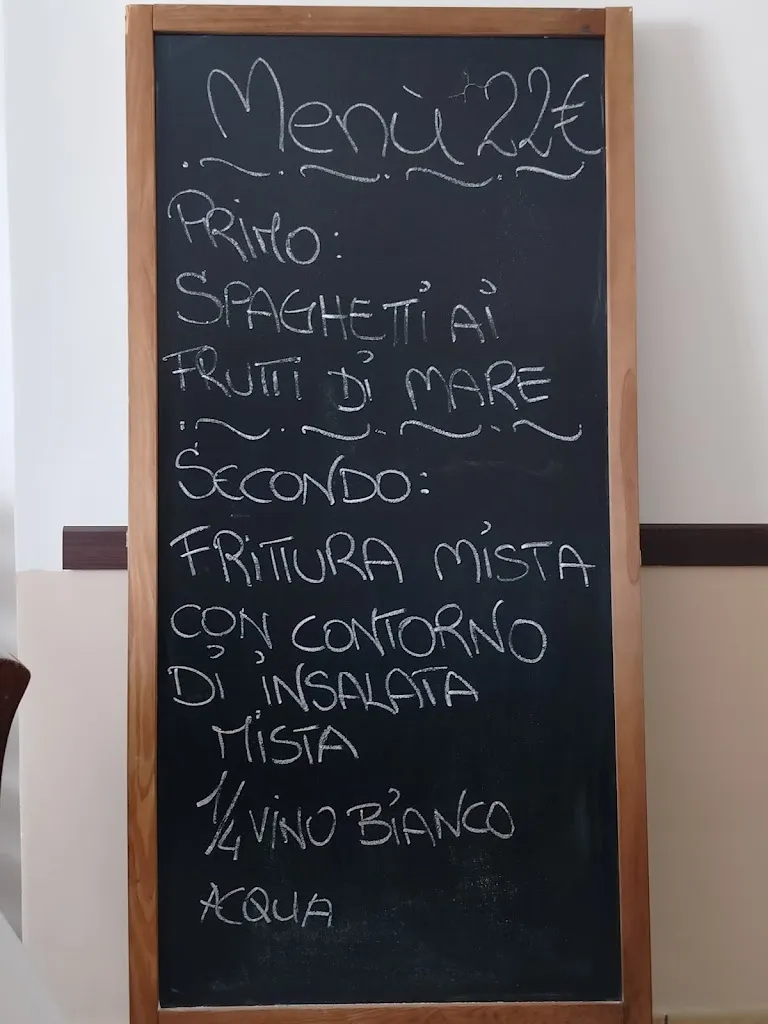 Menù 22€
PRIMO:
SPAGHETTI AI
FRUTTI DI MARE
SECONDO:
FRITTURA MISTA
CON CONTORNO
DI INSALATA
MISTA
1/4 VINO BIANCO
ACQUA